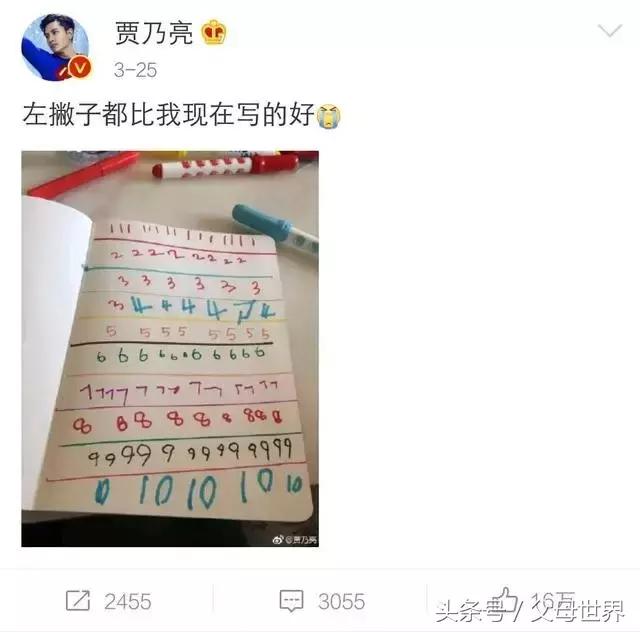 贾乃亮
3-25
左撇子都比我现在写的好
1 1 1 1 1 1 1 1 1 1 1
2 2 2 2 2 2 2 2
3 3 3 3 3 3
3 4 4 4 4 4
5 5 5 5 5 5 5 5
6 6 6 6 6 6 6 6 6 6
7 7 7 7 7 7 7 7 7 7 7 7
8 8 8 8 8 8 8 8 8
9 9 9 9 9 9 9 9 9 9 9 9 9
0 10 10 10 10
@贾乃亮
2455 3055 16万
头条号 / 父母世界